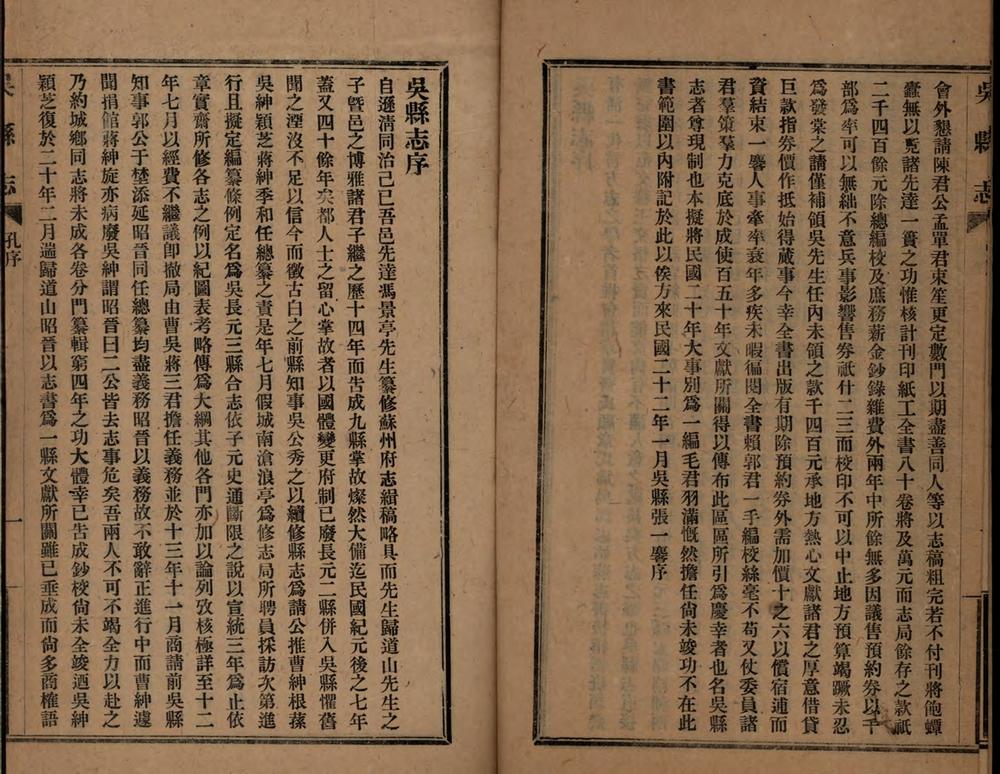 吳縣志
會外懇請陳君公孟單君束笙更定數門以期盡善同人等以志稿粗完若不付刊將飽蟫
蠹無以覓諸先達一簣之功惟核計刊印紙工全書八十卷將及萬元而志局餘存之款祇
二千四百餘元除總編校及庶務薪金鈔錄雜費外兩年中所餘無多因議售預約券以千
部爲率可以無絀不意兵事影響售券祇什二三而校印不可以中止地方預算竭蹶未忍
爲發棠之請僅補領吳先生任內未領之款千四百元承地方熱心文獻諸君之厚意借貸
巨款指券價作抵始得蕆事今幸全書出版有期除預約券外需加價十之六以償宿逋而
資結束一鏖人事牽率衰年多疾未暇徧閱全書賴郭君一手編校絲毫不苟又仗委員諸
君羣策羣力克底於成使百五十年文獻所關得以傳布此區區所引爲慶幸者也名吳縣
志者尊現制也本擬將民國二十年大事別爲一編毛君羽滿慨然擔任尙未竣功不在此
書範圍以內附記於此以俟方來民國二十二年一月吳縣張一鏖序
吳縣志序
自遜淸同治己巳吾邑先達馮景亭先生纂修蘇州府志緝稿略具而先生歸道山先生之
子曁邑之博雅諸君子繼之歷十四年而告成九縣掌故燦然大備迄民國紀元後之七年
蓋又四十餘年矣都人士之留心掌故者以國體變更府制已廢長元二縣併入吳縣懼舊
聞之湮沒不足以信今而徵古白之前縣知事吳公秀之以續修縣志爲請公推曹紳根蓀
吳紳穎芝蔣紳季和任總纂之責是年七月假城南滄浪亭爲修志局所聘員採訪次第進
行且擬定編纂條例定名爲吳長元三縣合志依子元史通斷限之說以宣統三年爲止依
章實齋所修各志之例以紀圖表考略傳爲大綱其他各門亦加以論列攷核極詳至十二
年七月以經費不繼議卽撤局由曹吳蔣三君擔任義務並於十三年十一月商請前吳縣
知事郭公于埜添延昭晉同任總纂均盡義務昭晉以義務故不敢辭正進行中而曹紳遽
聞捐館蔣紳旋亦病廢吳紳謂昭晉曰二公皆去志事危矣吾兩人不可不竭全力以赴之
乃約城鄉同志將未成各卷分門纂輯窮四年之功大體幸已告成鈔校尙未全竣迺吳紳
穎芝復於二十年二月遄歸道山昭晉以志書爲一縣文獻所關雖已垂成而尙多商榷語
吳縣志
孔序
一